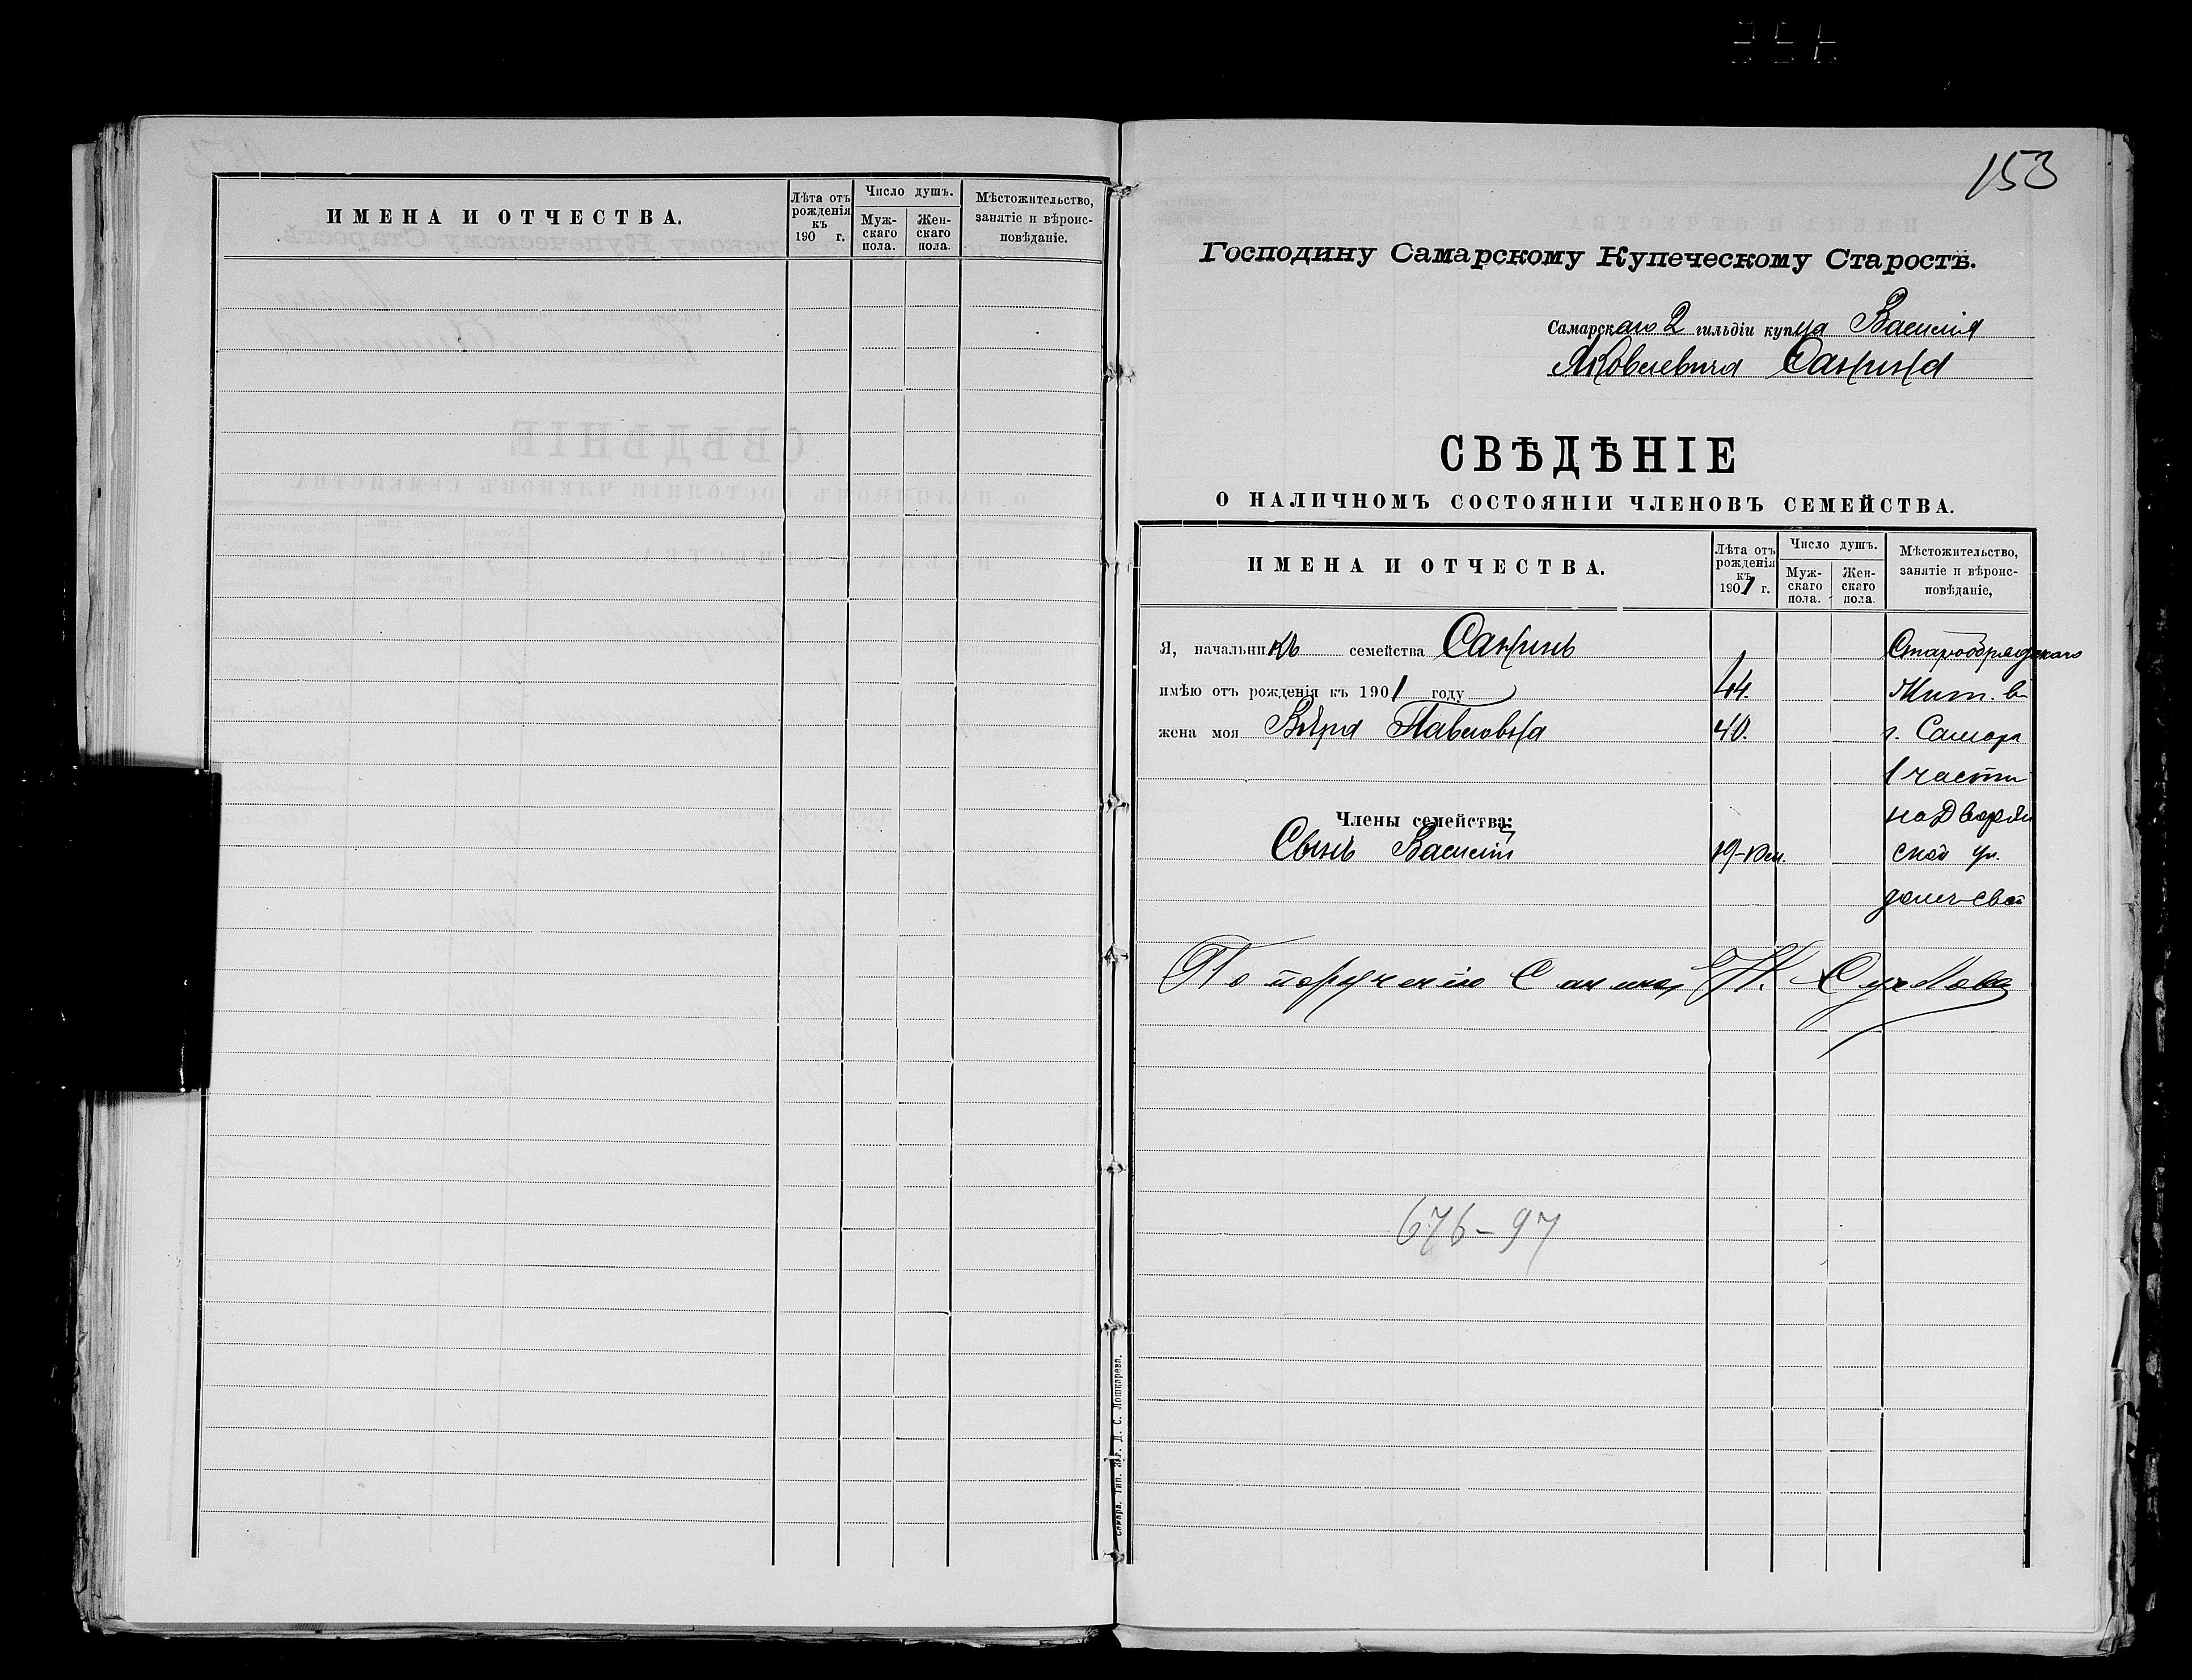 ИМЕНА И ОТЧЕСТВА.
Лѣта отъ рожденія къ 190 г.
Число душъ.
Мужскаго пола.
Женскаго пола.
Мѣстожительство, занятіе и вѣроисповѣданіе.
Самара. Тип. Д. С. Лошкарева.
153
Господину Самарскому Купеческому Старостѣ.
Самарскаго 2 гильдіи купца Василія
Яковлевича Санина
СВѢДѢНІЕ
О НАЛИЧНОМЪ СОСТОЯНІИ ЧЛЕНОВЪ СЕМЕЙСТВА.
ИМЕНА И ОТЧЕСТВА.
Лѣта отъ рожденія къ 1901 г.
Число душъ.
Мужскаго пола.
Женскаго пола.
Мѣстожительство, занятіе и вѣроисповѣданіе,
Я, начальникъ семейства Санинъ
имѣю отъ рожденія къ 1901 году 44.
жена моя Вѣра Павловна 40.
Старообрядскаго
Жит. в
г. Самара
1 части
на Дворян
ской ул.
домъ свой
Члены семейства:
Сынъ Василій 19
По порученію Санина Н.
676-97